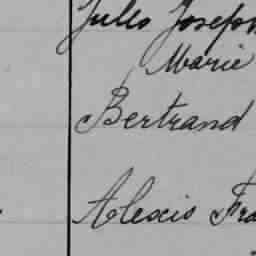 Jules Joseph
Marie
Bertrand
Alexis Fra